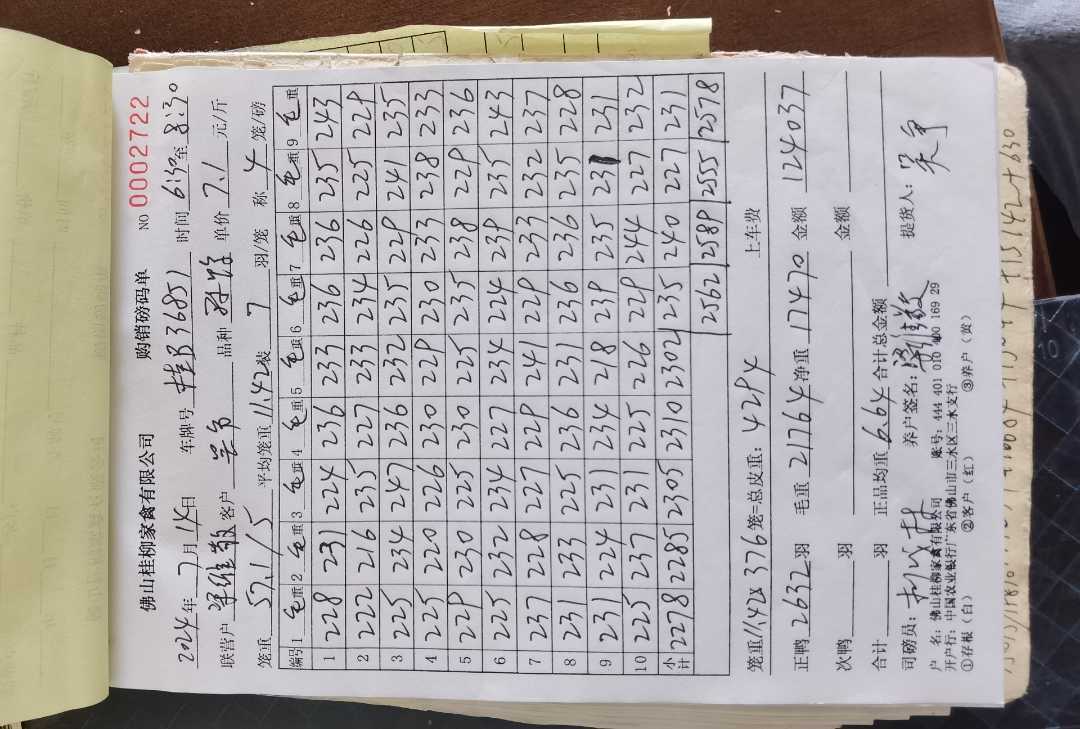 佛山桂柳家禽有限公司 购销磅码单 NO 0002722
2024年 7月 14日 车牌号 桂B36851 时间 6:30至8:30
联营户 客户 吴争 品种 单价 7.1 元/斤
笼重 57.1/5 平均笼重 11.42 装 7 羽/笼 称 4 笼/磅
编号 1 毛重 2 毛重 3 毛重 4 毛重 5 毛重 6 毛重 7 毛重 8 毛重 9 毛重
1 228 231 224 236 233 236 236 235 243
2 222 216 235 227 233 234 226 225 229
3 225 234 247 236 232 235 229 241 235
4 225 220 226 230 229 230 233 238 233
5 229 230 225 230 225 235 238 229 236
6 225 232 234 227 234 224 239 235 243
7 237 228 227 229 241 229 233 232 237
8 231 233 225 236 231 236 236 235 228
9 231 224 231 234 218 239 235 231 231
10 225 237 231 225 226 229 244 227 232
小计 2278 2285 2305 2310 2302 235 240 227 231
2562 2589 2555 2578
笼重 11.42 X 376 笼=总皮重: 4294 上车费
正鸭 2632 羽 毛重 21764 净重 17470 金额 124037
次鸭 羽 金额
合计 羽 正品均重 6.64 合计总金额
司磅员: 养户签名: 提货人: 吴争
户 名: 佛山桂柳家禽有限公司 账号: 444 401 010 400 169 29
开户行: 中国农业银行广东省佛山市三水区三水支行
①存根(白) ②客户(红) ③养户(黄)